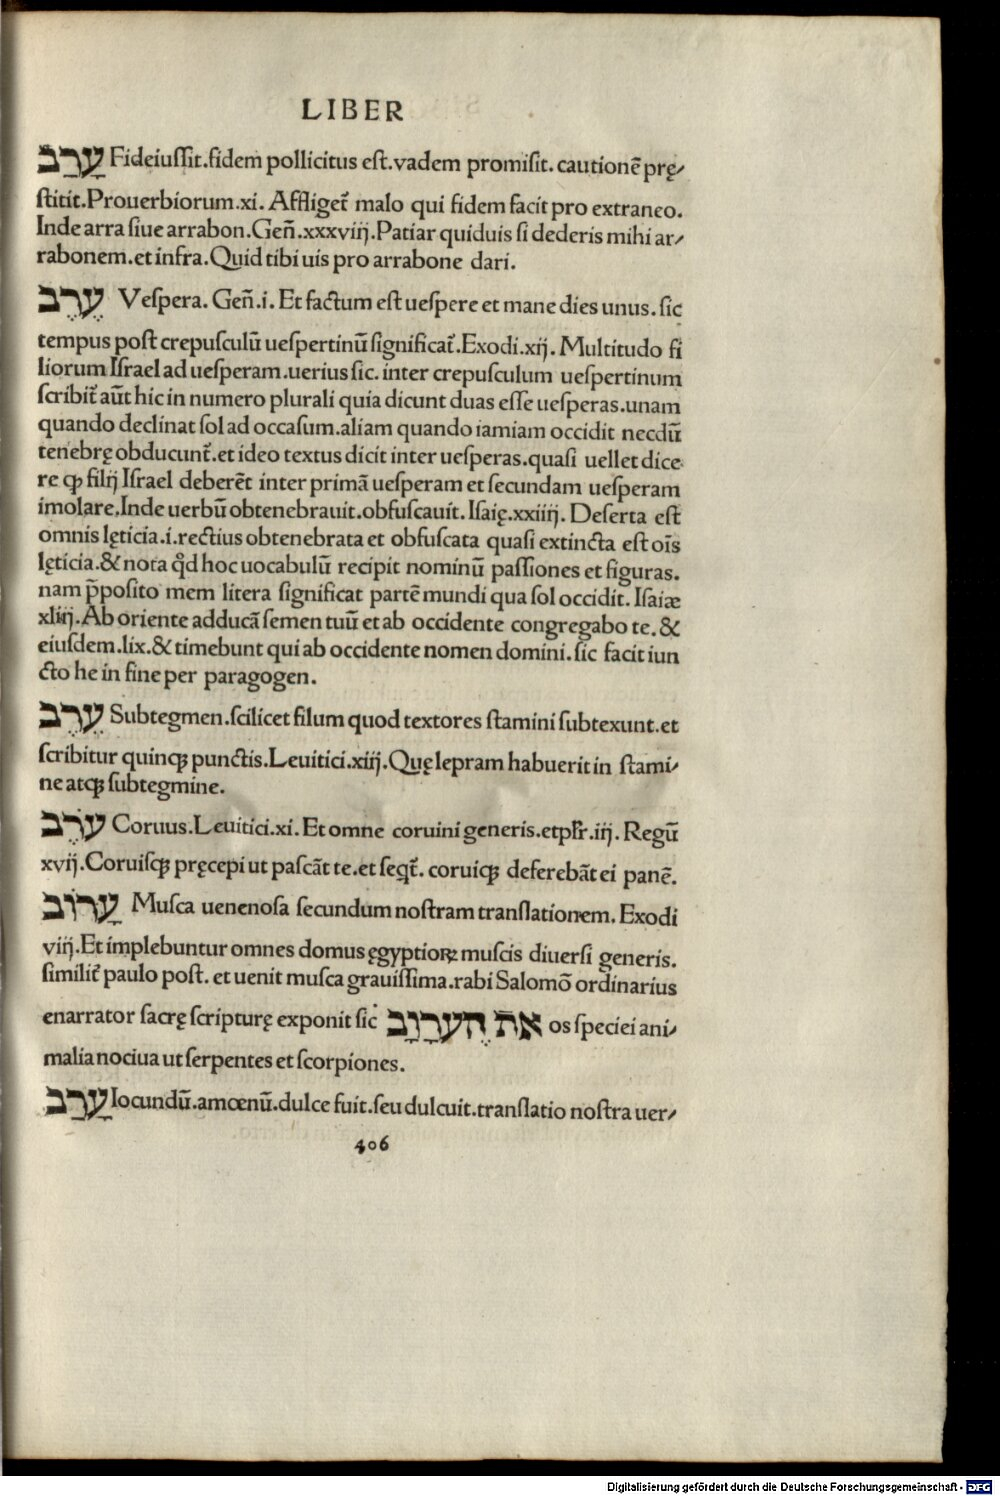 LIBER
עָרַב Fideiuſſit.fidem pollicitus eſt.vadem promiſit. cautionē prę⸗
ſtitit.Prouerbiorum.xi. Affliget᷑ malo qui fidem facit pro extraneo.
Inde arra ſiue arrabon.Geñ.xxxviij.Patiar quiduis ſi dederis mihi ar⸗
rabonem.et infra.Quid tibi uis pro arrabone dari.
עֶרֶב Veſpera. Geñ.i. Et factum eſt ueſpere et mane dies unus. ſic
tempus poſt crepuſculū ueſpertinū ſignificat᷑.Exodi.xij. Multitudo fi
liorum Iſrael ad ueſperam.uerius ſic. inter crepuſculum ueſpertinum
ſcribit᷑ aūt hic in numero plurali quia dicunt duas eſſe ueſperas.unam
quando declinat ſol ad occaſum.aliam quando iamiam occidit necdū
tenebrę obducunt᷑.et ideo textus dicit inter ueſperas.quaſi uellet dice
re ꝙ filij Iſrael deberēt inter primā ueſperam et ſecundam ueſperam
imolare.Inde uerbū obtenebrauit.obfuſcauit. Iſaię.xxiiij. Deſerta eſt
omnis lęticia.i.rectius obtenebrata et obfuſcata quaſi extincta eſt oīs
lęticia.& nota qd̄ hoc uocabulū recipit nominū paſſiones et figuras.
nam p̄poſito mem litera ſignificat partē mundi qua ſol occidit. Iſaiæ
xliij.Ab oriente adducā ſemen tuū et ab occidente congregabo te.&
eiuſdem.lix.& timebunt qui ab occidente nomen domini.ſic facit iun
cto he in fine per paragogen.
עֵרֶב Subtegmen.ſcilicet filum quod textores ſtamini ſubtexunt.et
ſcribitur quinqꝫ punctis.Leuitici.xiij.Quę lepram habuerit in ſtami⸗
ne atqꝫ ſubtegmine.
עֹרֶב Coruus.Leuitici.xi. Et omne coruini generis.et pr̄.iij. Regū
xvij.Coruiſqꝫ pręcepi ut paſcāt te.et ſeqt᷑. coruiqꝫ deferebāt ei panē.
עָרוֹב Muſca uenenoſa ſecundum noſtram tranſlationem. Exodi
viij.Et implebuntur omnes domus ęgyptioꝝ muſcis diuerſi generis.
ſimilit᷑ paulo poſt. et uenit muſca grauiſſima.rabi Salomō ordinarius
enarrator ſacrę ſcripturę exponit ſic אֵת הֶעָרָוֹב os ſpeciei ani⸗
malia nociua ut ſerpentes et ſcorpiones.
עָרַב Iocundū.amœnū.dulce fuit.ſeu dulcuit.tranſlatio noſtra uer⸗
406
Digitalisierung gefördert durch die Deutsche Forschungsgemeinschaft - DFG